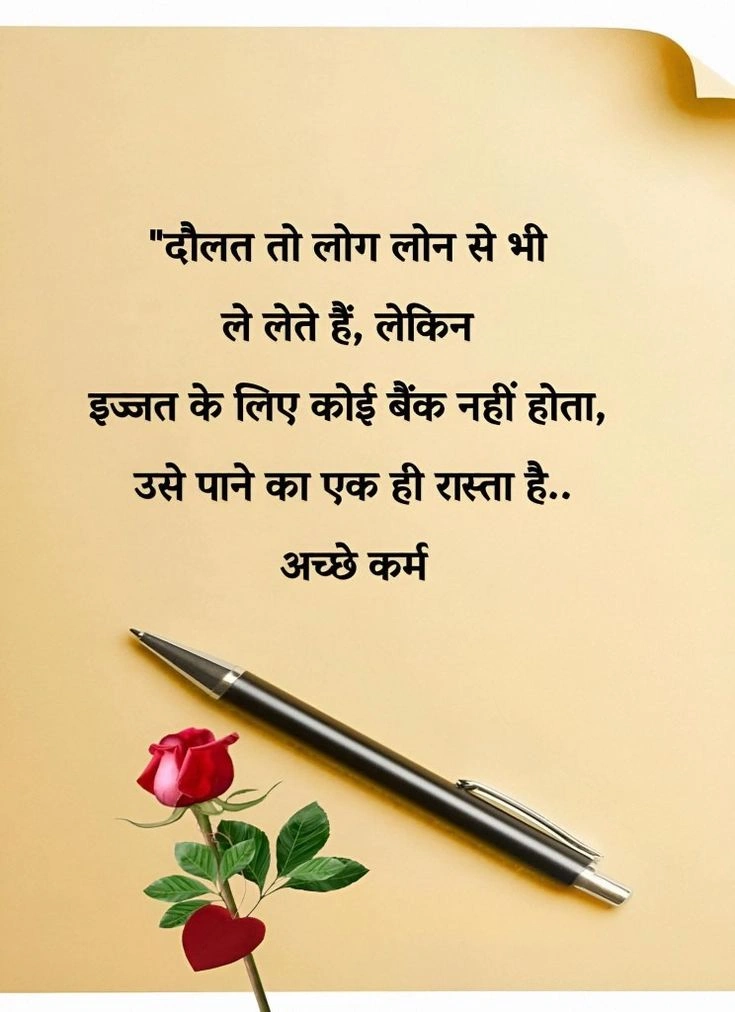 "दौलत तो लोग लोन से भी
ले लेते हैं, लेकिन
इज्जत के लिए कोई बैंक नहीं होता,
उसे पाने का एक ही रास्ता है..
अच्छे कर्म